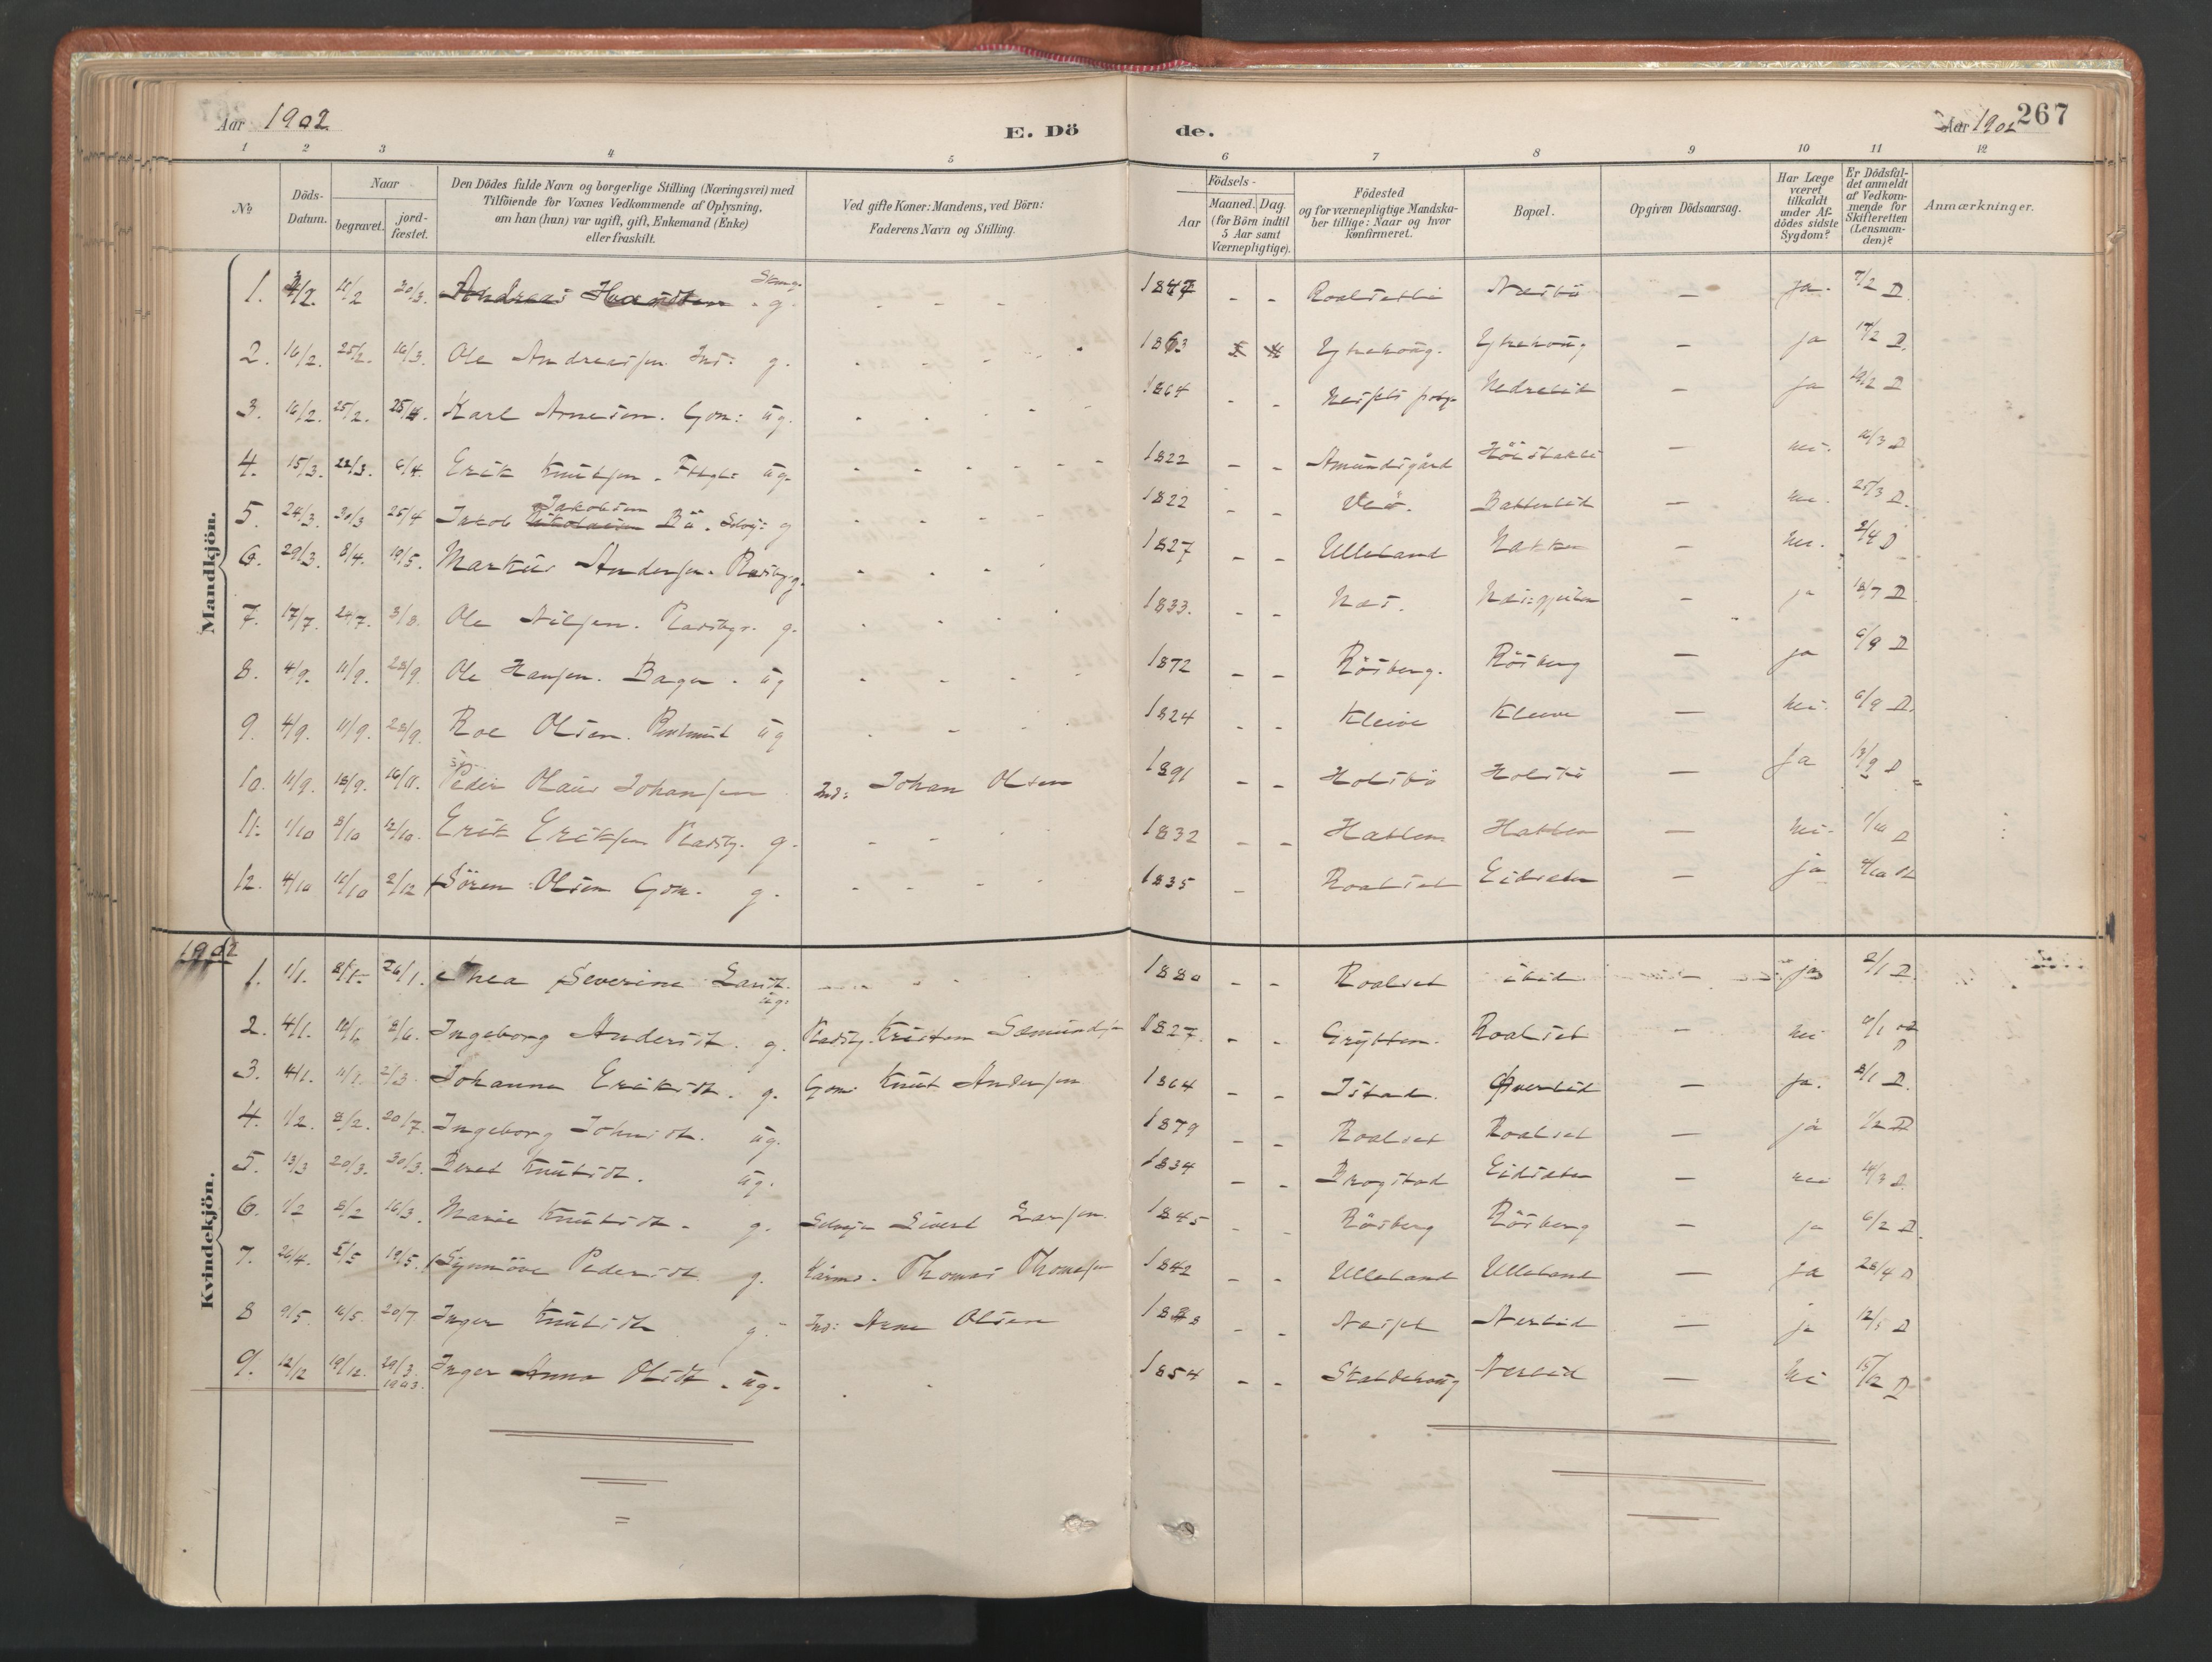 Aar 1902 E. Dö de. Aar 1902 267
1 2 3 4 5 6 7 8 9 10 11 12
No Döds-Datum. Naar begravet. jord-fæstet. Den Dödes fulde Navn og borgerlige Stilling (Næringsvei) med Tilföiende for Voxnes Vedkommende af Oplysning, om han (hun) var ugift, gift, Enkemand (Enke) eller fraskilt. Ved gifte Koner: Mandens, ved Börn: Faderens Navn og Stilling. Födsels- Aar Maaned. Dag. (for Börn indtil 5 Aar samt Værnepligtige). Födested og for værnepligtige Mandska-ber tillige: Naar og hvor konfirmeret. Bopæl. Opgiven Dödsaarsag. Har Læge været tilkaldt under Af-dödes sidste Sygdom? Er Dödsfal-det anmeldt af Vedkom-mende for Skifteretten (Lensman-den)? Anmærkninger.
Mandkjön.
1. 11/2 20/3. Andreas Hansen g. - - - - - Næsbö - ja. 7/2 D.
2. 16/2. 25/2. 16/3. Ole Andreassen Ind: g. - - - - 1863 Ytrehoug. Ytrehoug - ja 17/2 D.
3. 16/2. 25/2. Karl Arnesen. Gm: ug. - - - - 1864 - - Nedrelid - ja 19/2 D
4. 15/3. 22/3. 6/4 Erik Knutsen. ug. - - - - - - 1822 - - Amundsgård - nei. 16/3 D
5. 24/3. 30/3 25/4 Jakob Jakobsen Bö. Selvej: g - - - - 1822 - - Veö. Battenlid - nei. 25/3 D.
6. 29/3. 8/4. 19/5. Markus Andersen. Pladsbg. g. - - - - 1827 - - Ulleland Hakken - nei. 2/4 D
7. 17/7. 24/7. 3/8. Ole Nilsen. Pladsbgr. g. - - - 1833. - - Næs. - ja 18/7 D.
8. 4/9. 11/9. 28/9. Ole Hansen. Bager. ug - - - - 1872 - - Rösberg. Rösberg - ja 6/9 D
9. 4/9. 11/9. 28/9. Roe Olsen. ug - - - - 1824 - - Kleive Kleive - nei. 6/9 D.
10. 11/9. 18/9. 16/11. Peder Olaus Johansen Ind: Johan Olsen 1891 - - Holsbö Holsbö - Ja 13/9 D
11. 1/10 8/10 12/10. Erik Eriksen Pladsbg. g. - - - 1832 - - Hatlen Hatlen - nei. 1/10 D
12. 4/10 10/10 2/12 Sören Olsen Gm. g. - - - - 1835 - Roalset Eidseter - ja 4/10 D
1902
Kvindekjön.
1. 1/1. 8/1. 26/1. Thea Severine Larsdt. ug. - - - 1880 - - Roalset ibid - ja 2/1 D
2. 4/1. Ingeborg Andersdt. g. Pladsbg. Kristen 1827. - - Grytten. Roalset - nei 6/1 02 D
3. 4/1. 11/1. 2/3. Johanne Eriksdt. g. Gm: Knut Andersen 1864 - - Istad. Överlid - ja. 8/1 D.
4. 1/2. 8/2. 20/7. Ingeborg Johnsdt. ug. 1879 - - Roalset Roalset - ja 1/2 D
5. 13/3 20/3. 30/3. Beret Knutsdt. ug. 1834 - - Drogstad Eidseter - nei 14/3 D.
6. 1/2 8/2 16/3. Marie Knutsdt. g. Selvejer Sivert Larsen 1845 - - Rösberg Rösberg - ja 6/2 D.
7. 26/4. 5/5 19/5. Synnöve Pedersdt. g. Kårmd. Thomas Thomasen 1842 - - Ulleland Ulleland - Ja 28/4 D
8 9/5. 16/5. 20/7 Inger Knutsdt. g. Ind: Arne Olsen - - Nerlid - ja 12/5 D
9. 12/12 19/12. 29/3. 1903. Inger Anna Olsdt. ug. - - 1854 - - Skaldehoug Nerlid - nei 15/12 D